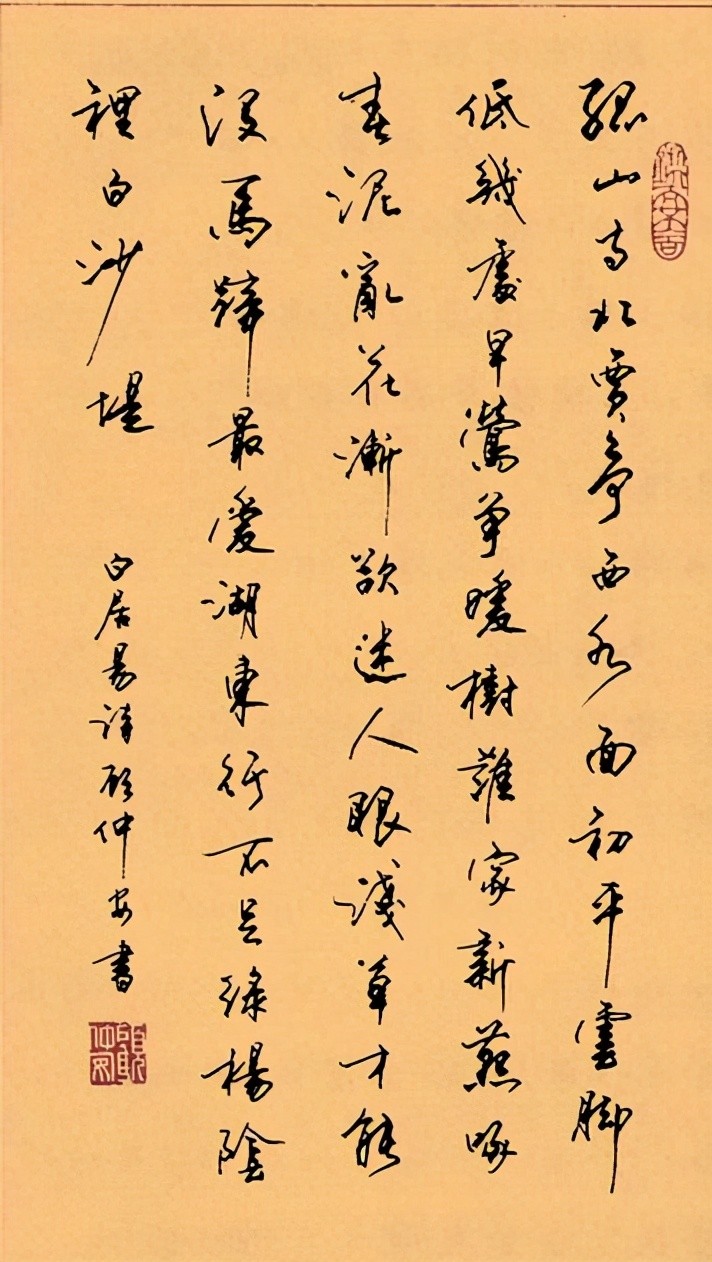 孤山寺北賈亭西水面初平雲脚
低幾處早鶯争暖樹誰家新燕啄
春泥亂花漸欲迷人眼淺草才能
沒馬蹄最愛湖東行不足綠楊陰
裡白沙堤
白居易詩顧仲安書
顧仲安